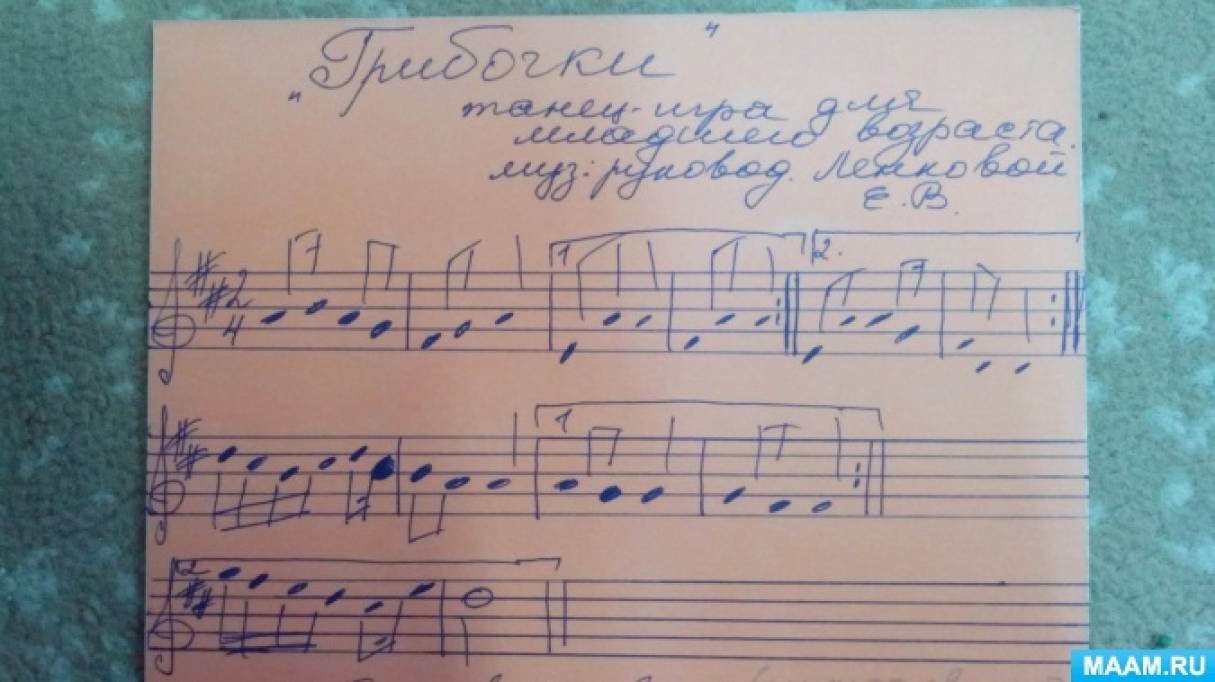 "Грибочки"
танец-игра для
младшего возраста.
муз: руковод. Ленковой
Е.В.
2
4
1
2.
1
2
MAAM.RU